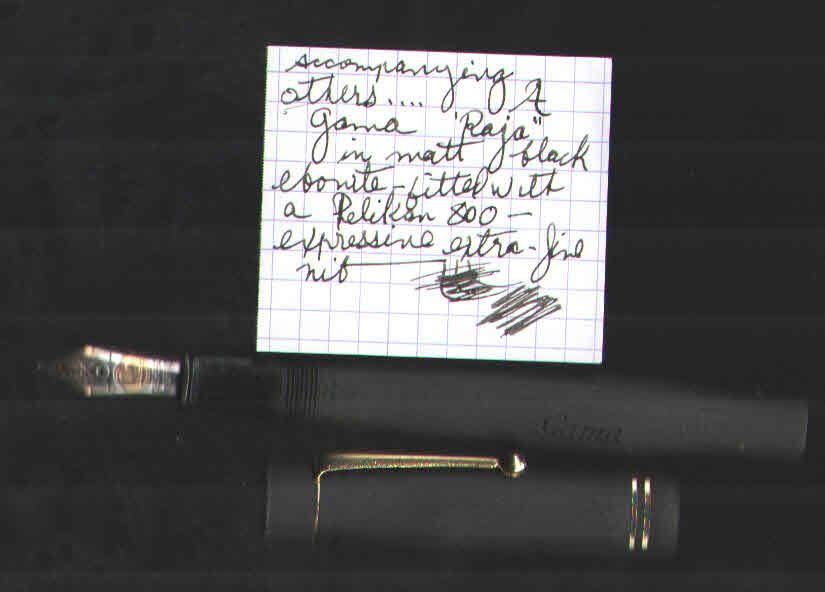 accompanying
others.... A
Gama "Raja"
in matt black
ebonite-fitted with
a Pelikan 800 —
expressive extra-fine
nib
Gama